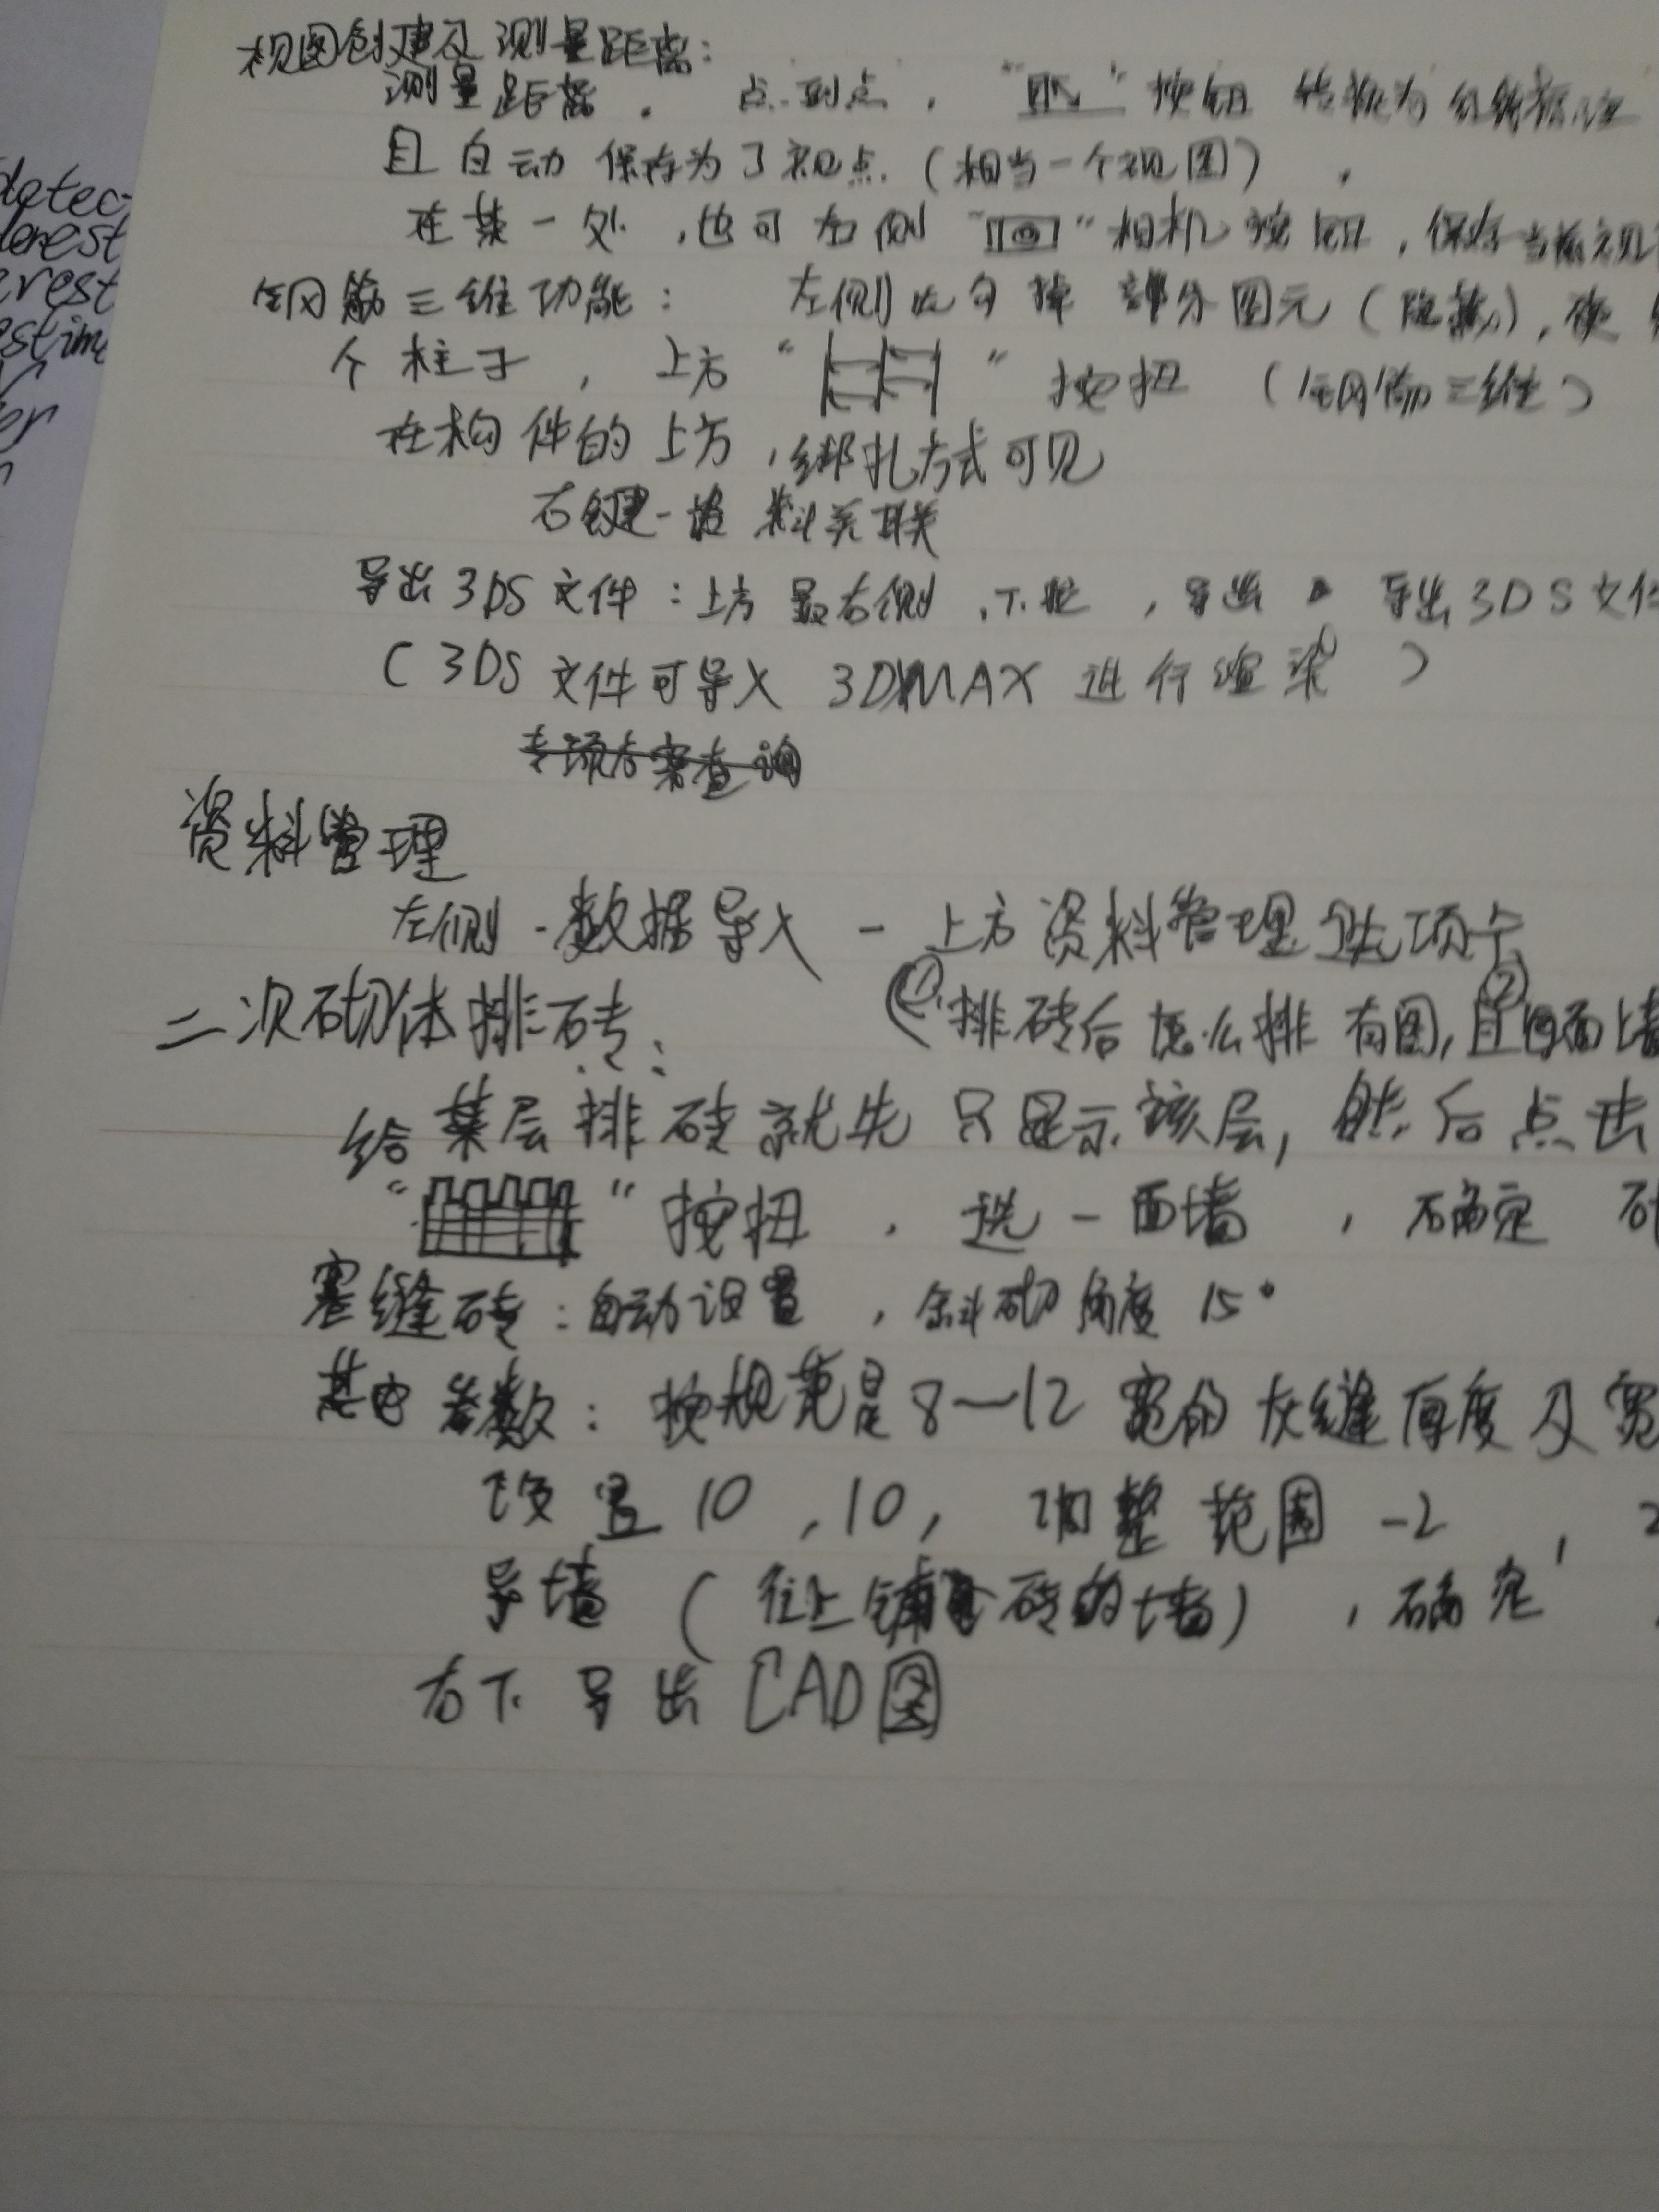 视图创建及测量距离：
测量距离，点到点，“ ”按钮 转换为红线标注
且自动保存为了视点（相当一个视图），
在某一处，也可右侧“ ”相机按钮，保存当前视
钢筋三维功能：左侧 勾掉部分图元（隐藏），使
个柱子，上方“ ”按扭（钢筋三维）
在构件的上方，绑扎方式可见
右键-资料关联
导出3DS文件：上方最右侧，下拉，导出 导出3DS文件
（3DS文件可导入3DMAX进行渲染）
专项方案查询
资料管理
左侧-数据导入-上方资料管理
二次砌体排砖：（①排砖后怎么排有图，②且每面墙
给某层排砖就先只显示该层，然后点击
“ ”按扭，选一面墙，确定 砖
塞缝砖：自动设置，斜砌角度15°
其它参数：按规范是8~12宽的灰缝厚度及宽
设置10，10，调整范围-2，2
导墙（往上铺 砖的墙），确定，
右下导出CAD图
detec-
derest
erest
estim
er